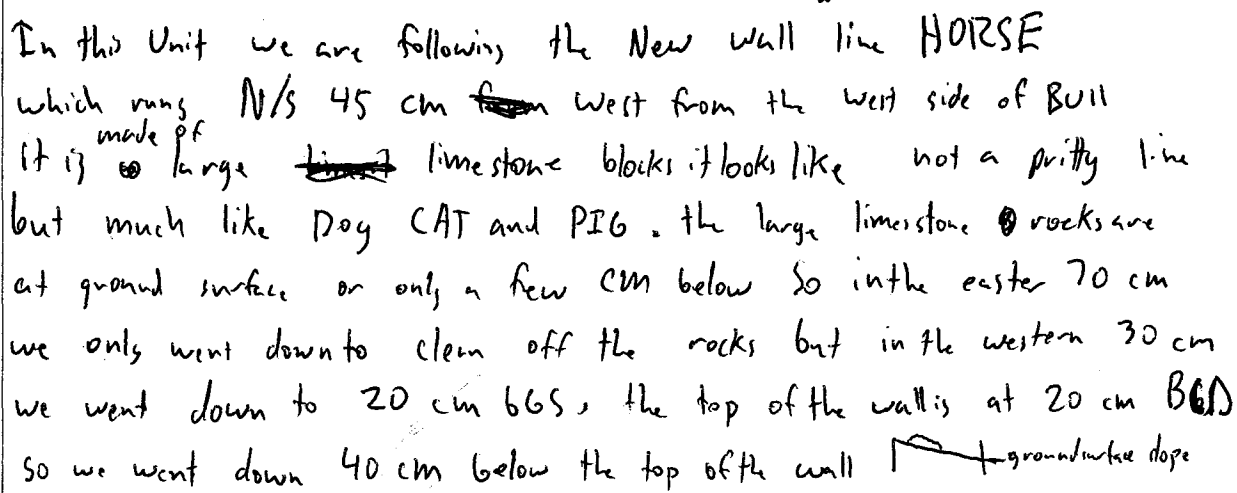 In this Unit we are following the New wall line HORSE
which runs N/S 45 cm west from the west side of Bull
it is made of large limestone blocks it looks like not a pritty line
but much like Dog CAT and PIG. the large limesstone rocks are
at ground surface or only a few cm below So in the easter 70 cm
we only went down to clean off the rocks but in the western 30 cm
we went down to 20 cm bGS, the top of the wall is at 20 cm
so we went down 40 cm below the top of the wall ground surface slope